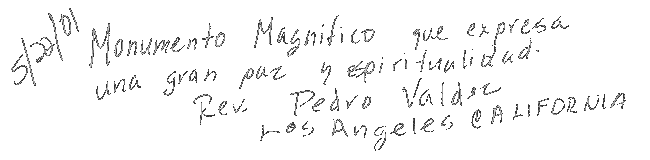 5/20/01 Monumento Magnifico que expresa
una gran paz y espiritualidad.
Rev. Pedro Valdez
Los Angeles CALIFORNIA